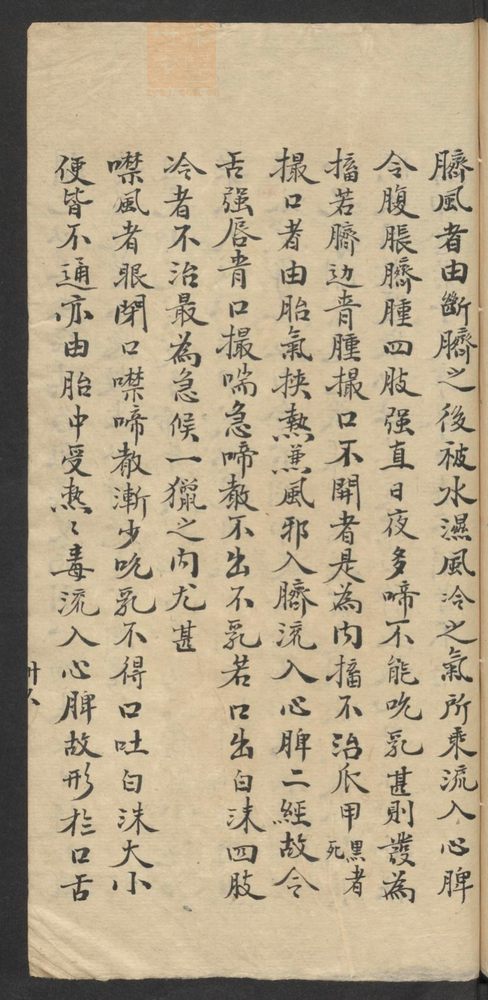 臍風者由斷臍之後被水濕風冷之氣所乘流入心脾
令腹脹臍腫四肢强直日夜多啼不能吮乳甚則發為
搐若臍边青腫撮口不開者是為内搐不治爪甲黑者死
撮口者由胎氣挾熱兼風邪入臍流入心脾二經故令
舌强唇青口撮喘急啼聲不出不乳若口出白沫四肢
冷者不治最為急候一獵之内尤甚
噤風者眼閉口噤啼聲漸少吮乳不得口吐白沫大小
便皆不通亦由胎中受热〻毒流入心脾故形於口舌
廿八